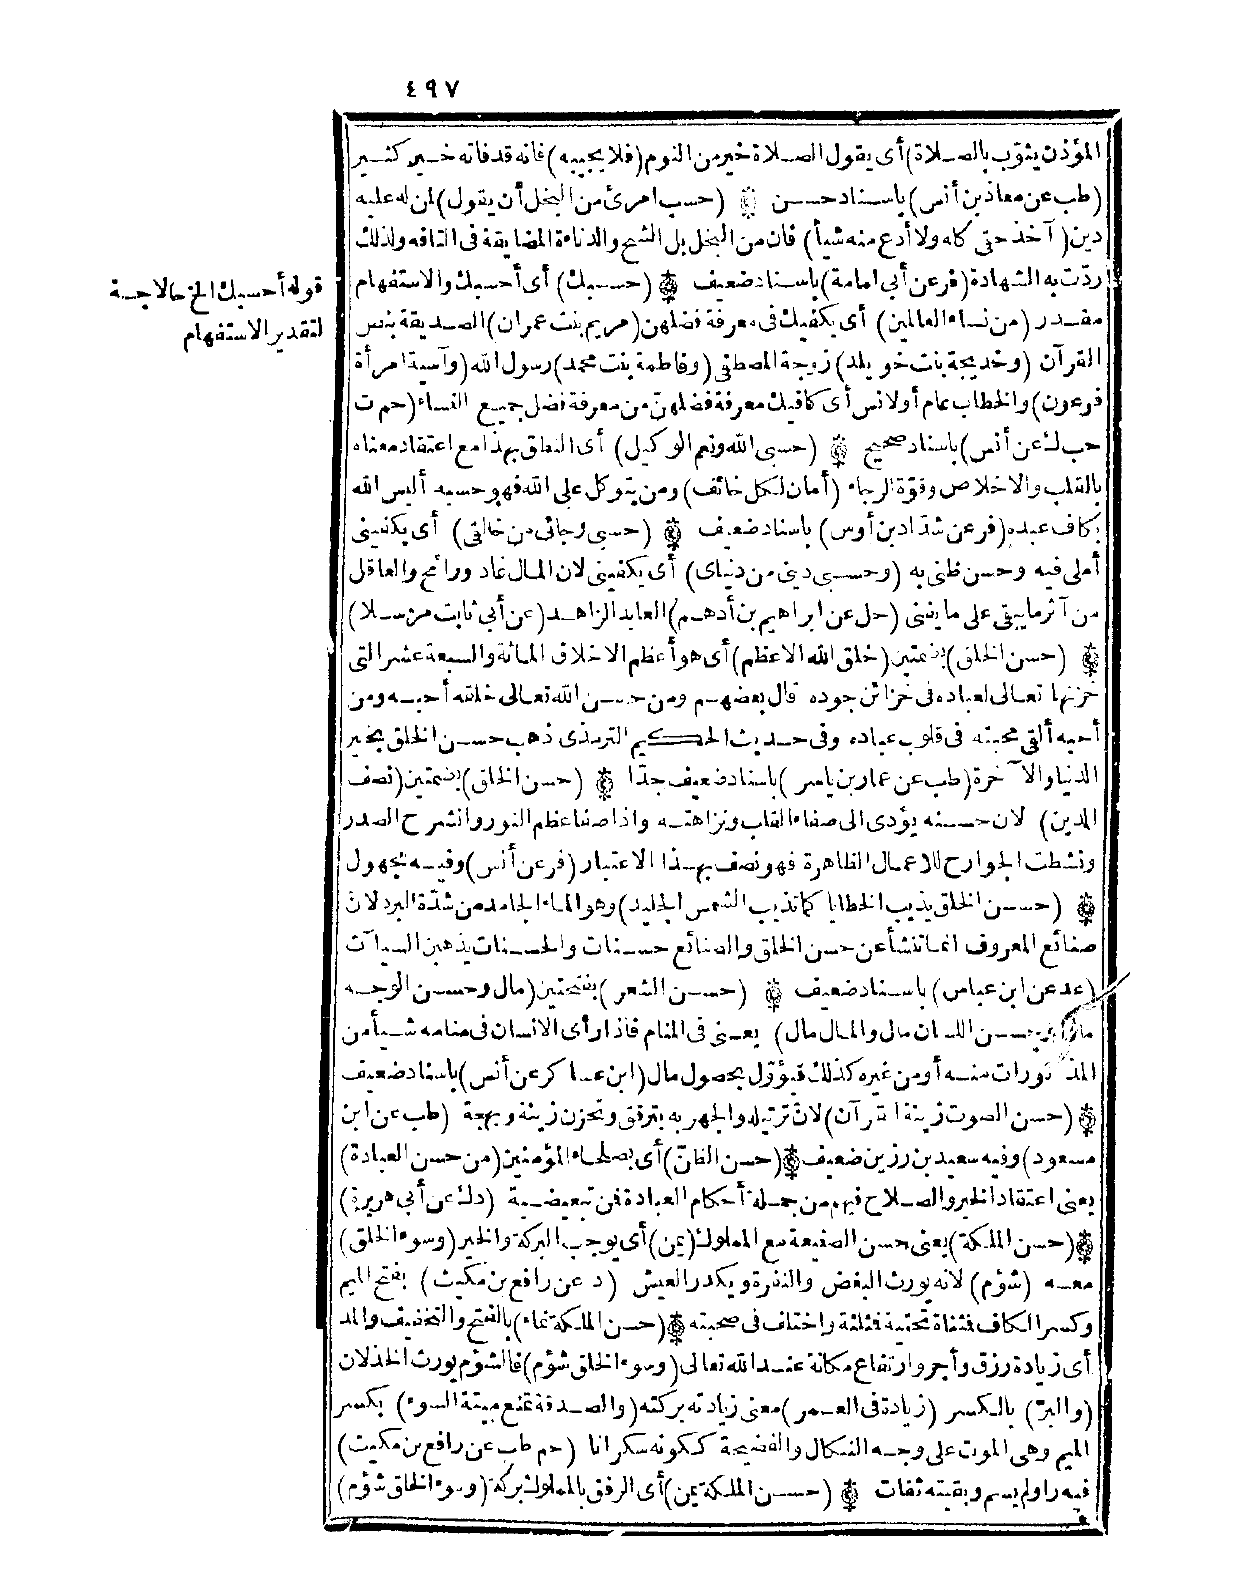 ٤٩٧
المؤذن يثوّب بالصلاة) أى يقول الصلاة خير من النوم (فلا يجيبه) فانه قد فاته خير كثير
(طب عن معاذ بن أنس) باسناد حسن ۞ (حسب امرئ من البخل أن يقول) لمن له عليه
دين (آخذ حتى كاه ولا أدع منه شيأ) فان من البخل بل الشح والدناءة المضايقة فى التافه ولذلك
ردّت به الشهادة (فر عن أبى امامة) باسناد ضعيف ۞ (حسبك) أى أحسبك والاستفهام
مقدر (من نساء العالمين) أى يكفيك فى معرفة فضلهن (مريم بنت عمران) الصديقة بنص
القرآن (وخديجة بنت خويلد) زوجة المصطفى (وفاطمة بنت محمد) رسول الله (وآسية امرأة
فرعون) والخطاب عام أولانس أى كافيك معرفة فضلهنّ من معرفة فضل جميع النساء (حم ت
حب ك عن أنس) باسناد صحيح ۞ (حسبى الله ونعم الوكيل) أى النطق بهذا مع اعتقاد معناه
بالقلب والاخلاص وقوّة الرجاء (أمان لكل خائف) ومن يتوكل على الله فهو حسبه أليس الله
بكاف عبده (فر عن شدّاد بن أوس) باسناد ضعيف ۞ (حسبى رجائى من خالقى) أى يكفينى
أملى فيه وحسن ظنى به (وحسبى دينى من دنياى) أى يكفينى لان المال غاد ورائح والعاقل
من آثر ما يبقى على ما يفنى (حل عن ابراهيم بن أدهم) العابد الزاهد (عن أبى ثابت مرسلا)
۞ (حسن الخلق) بضمتين (خلق الله الاعظم) أى هو أعظم الاخلاق المائة والسبعة عشر التى
خزنها تعالى لعباده فى خزائن جوده قال بعضهم ومن حسن الله تعالى خلقه أحبه ومن
أحبه ألقى محبته فى قلوب عباده وفى حديث الحكيم الترمذى ذهب حسن الخلق بخير
الدنيا والآخرة (طب عن عمار بن ياسر) باسناد ضعيف جدّا ۞ (حسن الخلق) بضمتين (نصف
الدين) لان حسنه يؤدى الى صفاء القلب ونزاهته واذا صفا عظم النور وانشرح الصدر
ونشطت الجوارح للاعمال الظاهرة فهو نصف بهذا الاعتبار (فر عن أنس) وفيه مجهول
۞ (حسن الخلق يذيب الخطايا كما تذيب الشمس الجليد) وهو الماء الجامد من شدّة البرد لان
صنائع المعروف انما تنشأ عن حسن الخلق والصنائع حسنات والحسنات يذهبن السيآت
(عد عن ابن عباس) باسناد ضعيف ۞ (حسن الشعر) بفتحتين (مال وحسن الوجه
مال وحسن اللسان مال والمال مال) يعنى فى المنام فاذا رأى الانسان فى منامه شيأ من
المذكورات منه أو من غيره كذلك فيؤوّل بحصول مال (ابن عساكر عن أنس) باسناد ضعيف
۞ (حسن الصوت زينة القرآن) لان ترتيله والجهر به بترقق وتحزن زينة وبهجة (طب عن ابن
مسعود) وفيه سعيد بن رزين ضعيف ۞ (حسن الظنّ) أى بصلحاء المؤمنين (من حسن العبادة)
يعنى اعتقاد الخير والصلاح فيهم من جملة أحكام العبادة فمن تبعيضية (د ك عن أبى هريرة)
۞ (حسن الملكة) يعنى حسن الصنيعة مع المملوك (يمن) أى يوجب البركة والخير (وسوء الخلق)
معه (شؤم) لانه يورث البغض والنفرة ويكدر العيش (د عن رافع بن مكيث) بفتح الميم
وكسر الكاف فمثناة تحتية فمثلثة واختلف فى صحبته ۞ (حسن الملكة نماء) بالفتح والتخفيف والمد
أى زيادة رزق وأجر وارتفاع مكانة عند الله تعالى (وسوء الخلق شؤم) فالشؤم يورث الخذلان
(والبرّ) بالكسر (زيادة فى العمر) معنى زيادته بركته (والصدقة تمنع ميتة السوء) بكسر
الميم وهى الموت على وجه النكال والفضيحة ككونه سكرانا (حم طب عن رافع بن مكيث)
فيه راو لم يسم وبقيته ثقات ۞ (حسن الملكة يمن) أى الرفق بالمملوك بركة (وسوء الخلق شؤم)
قوله أحسبك الخ لا حاجة
لتقدير الاستفهام